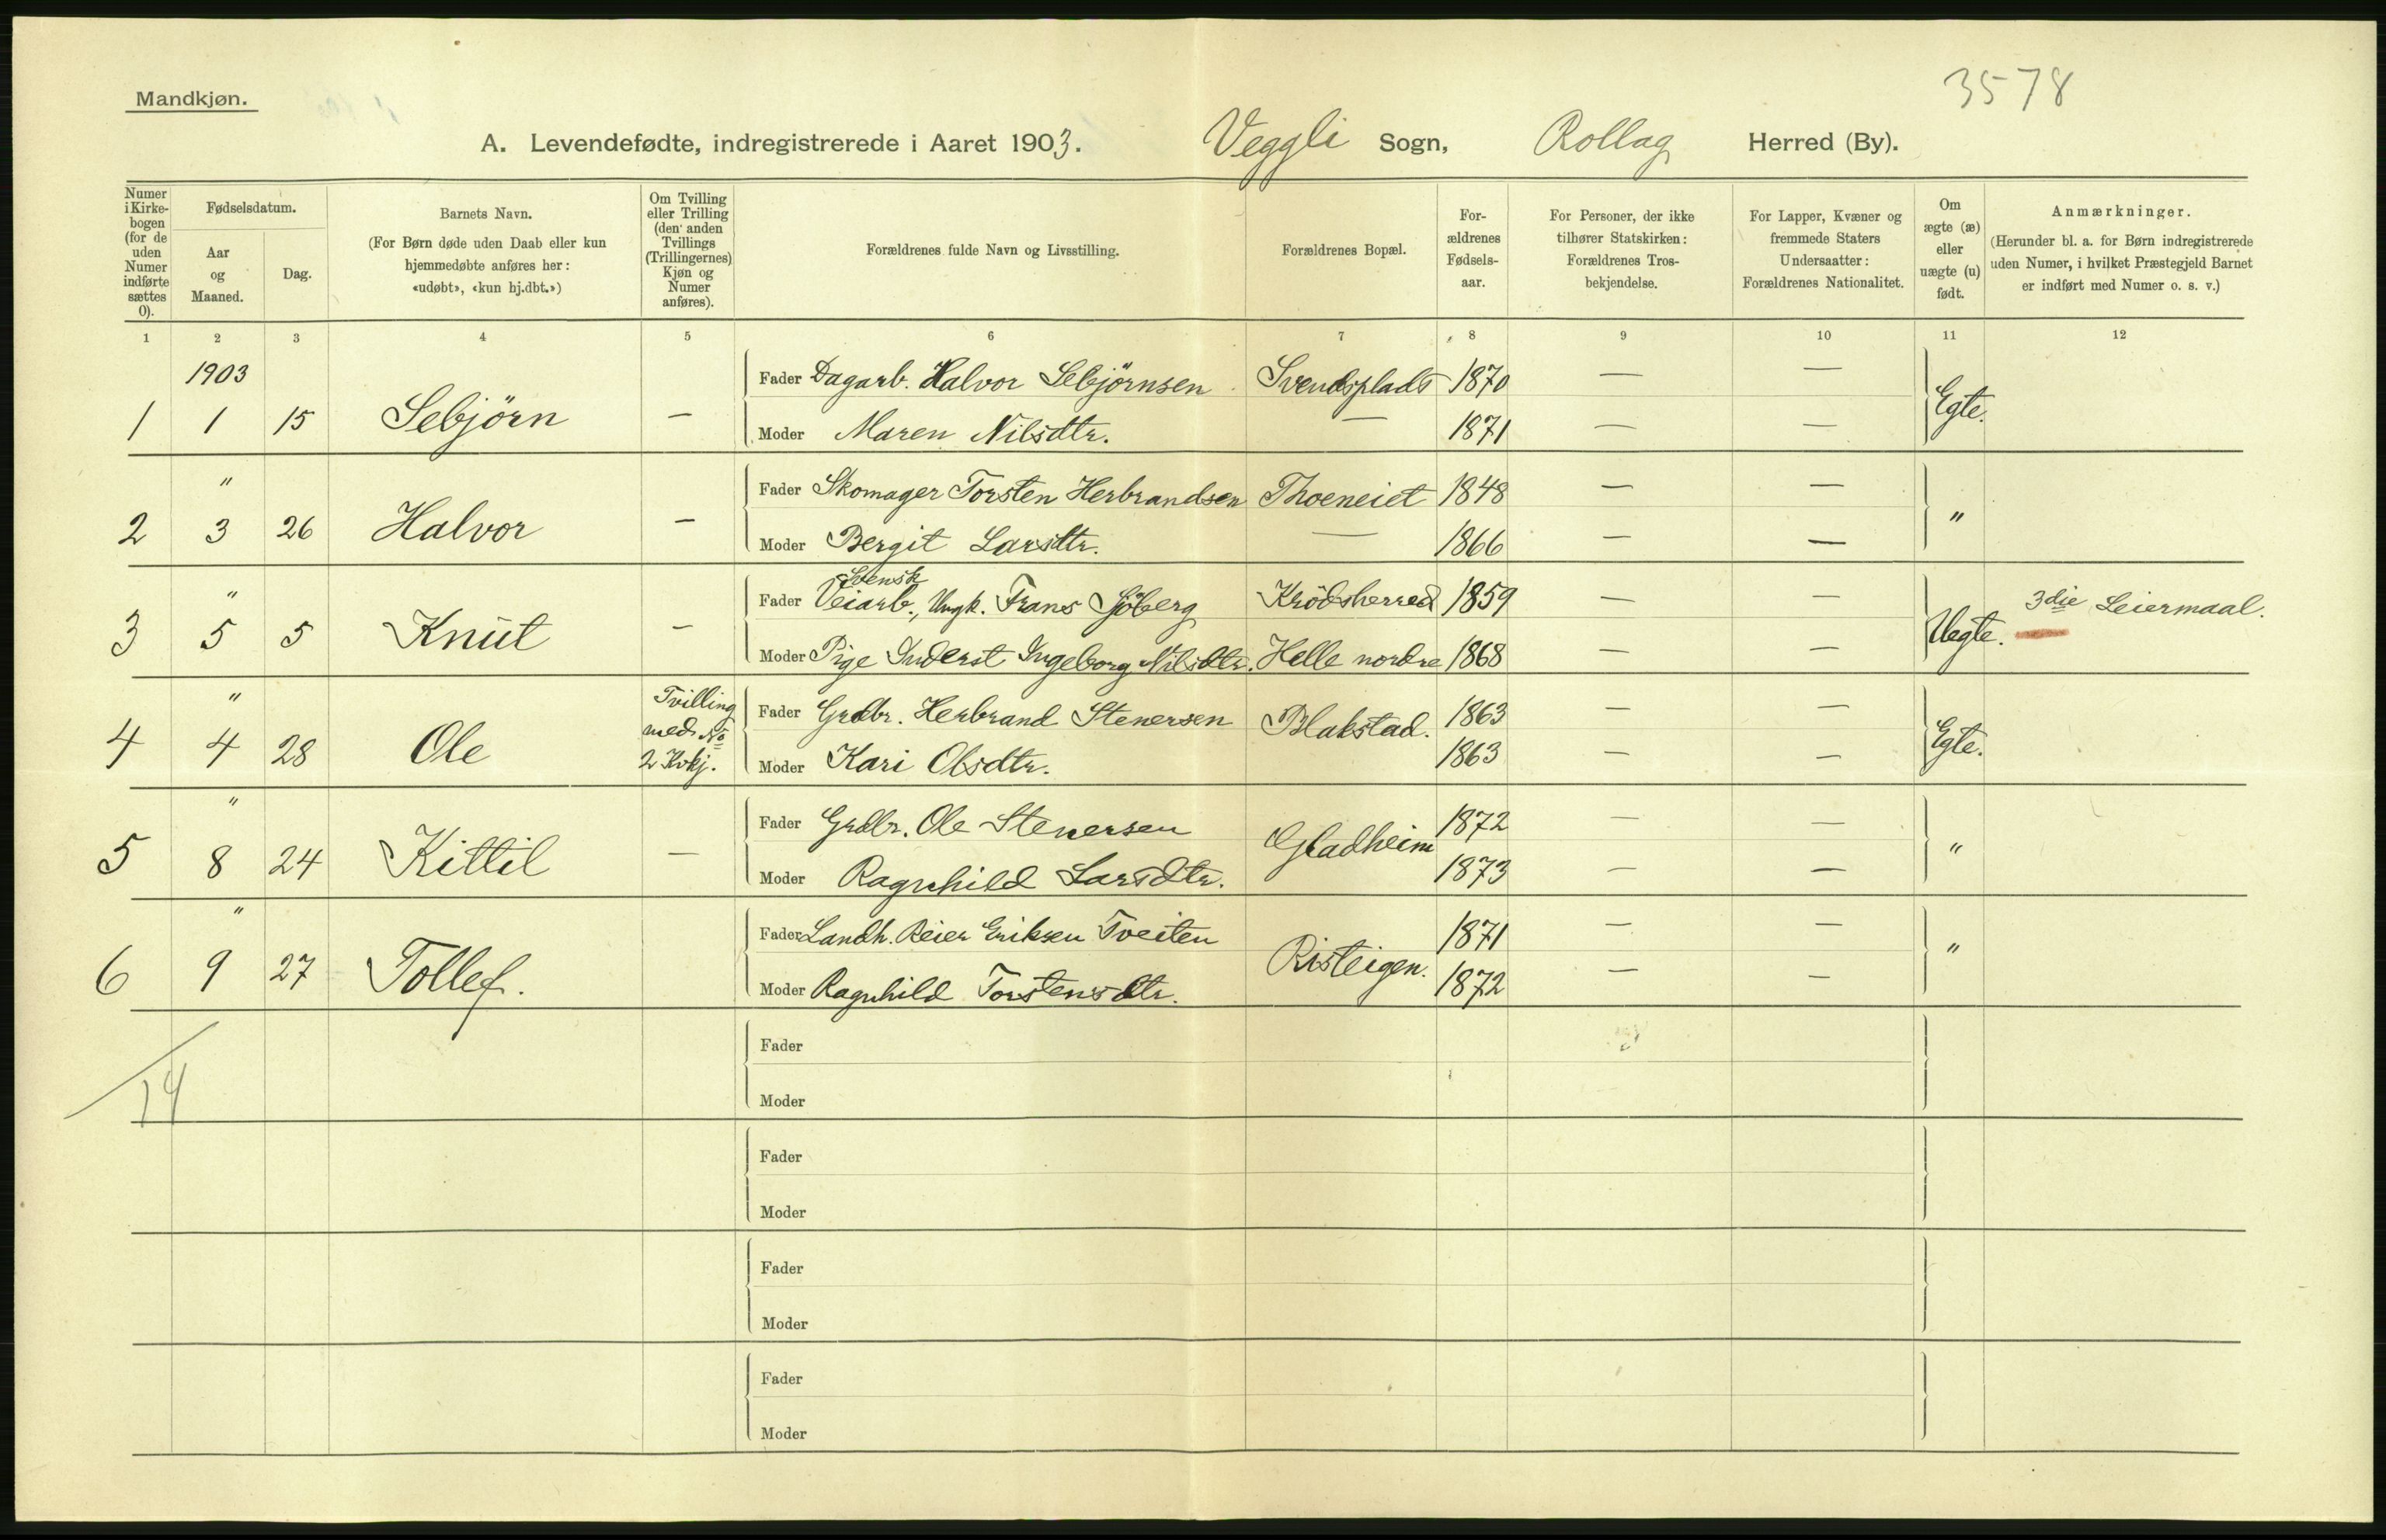 3578
Mandkjøn.
A. Levendefødte, indregistrerede i Aaret 1903. Veggli Sogn, Rollag Herred (By).
Numer i Kirke-bogen (for de uden Numer indførte sættes 0).
Fødselsdatum.
Aar og Maaned.
Dag.
Barnets Navn.
(For Børn døde uden Daab eller kun hjemmedøbte anføres her: «udøbt», «kun hj.dbt.»)
Om Tvilling eller Trilling (den anden Tvillings (Trillingernes) Kjøn og Numer anføres).
Forældrenes fulde Navn og Livsstilling.
Forældrenes Bopæl.
For-ældrenes Fødsels-aar.
For Personer, der ikke tilhører Statskirken: Forældrenes Tros-bekjendelse.
For Lapper, Kvæner og fremmede Staters Undersaatter: Forældrenes Nationalitet.
Om ægte (æ) eller uægte (u) født.
Anmærkninger.
(Herunder bl. a. for Børn indregistrerede uden Numer, i hvilket Præstegjeld Barnet er indført med Numer o. s. v.)
1 2 3 4 5 6 7 8 9 10 11 12
1903
Fader Dagarb. Halvor Sebjörnsen Svendsplads 1870 — —
1 1 15 Sebjörn — Egte.
Moder Maren Nilsdtr. — 1871 — —
"
Fader Skomager Torsten Herbrandsen Thoeneiet 1848 — —
2 3 26 Halvor — "
Moder Bergit Larsdtr. — 1866 — —
"
Svensk
Fader Veiarb., Ungk. Frans Sjöberg Krödsherred 1859 — —
3 5 5 Knut — Uegte. 3die Leiermaal.
Moder Pige Inderst Ingeborg Nilsdtr. Helle nordre 1868 — —
"
Fader Grdbr. Herbrand Stenersen Blakstad. 1863 — —
4 4 28 Ole Tvilling med No 2 Kvkj. Egte.
Moder Kari Olsdtr. 1863 — —
"
Fader Grdbr. Ole Stenersen Gladheim 1872 — —
5 8 24 Kittil — "
Moder Ragnhild Larsdtr. 1873 — —
"
Fader Landh. Reier Eriksen Tveiten Risteigen. 1871 — —
6 9 27 Tollef. "
Moder Ragnhild Torstensdtr. 1872 — —
Fader
14
Moder
Fader
Moder
Fader
Moder
Fader
Moder